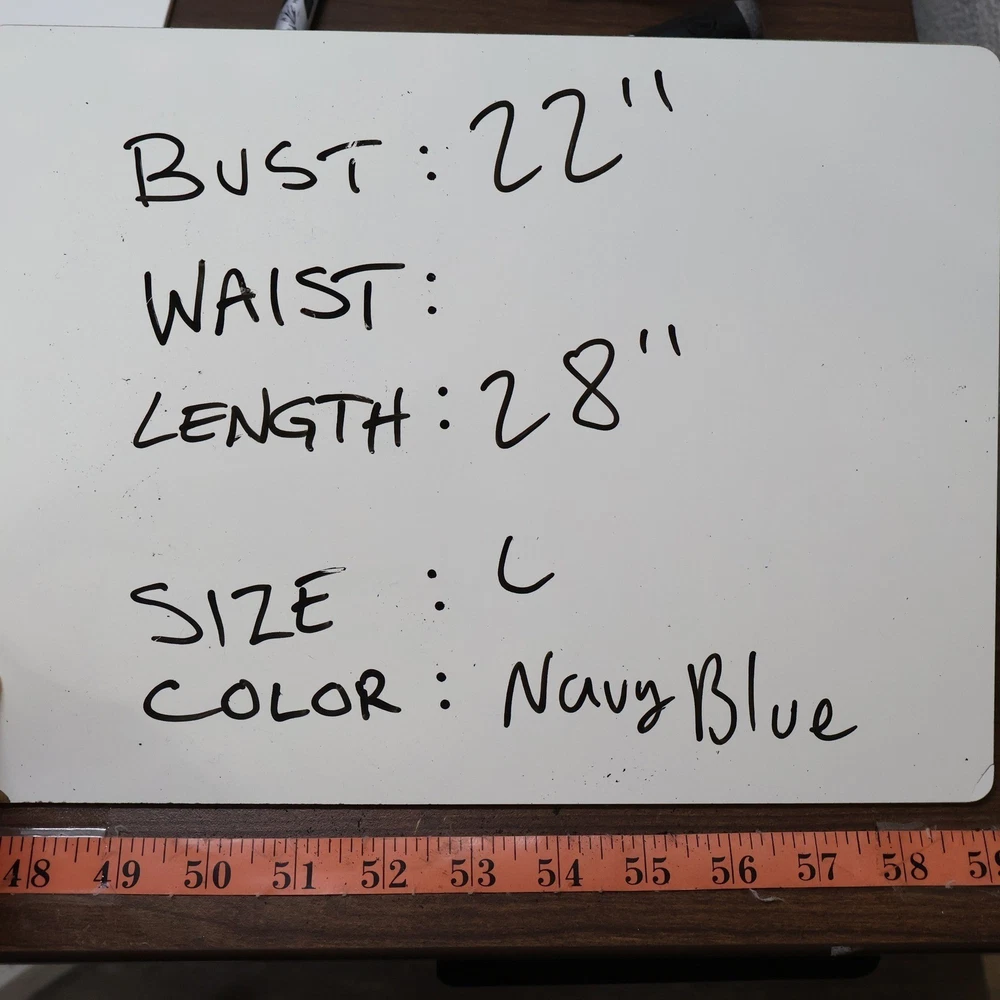 BUST: 22"
WAIST:
LENGTH: 28"
SIZE : L
COLOR: Navy Blue
48 49 50 51 52 53 54 55 56 57 58 59